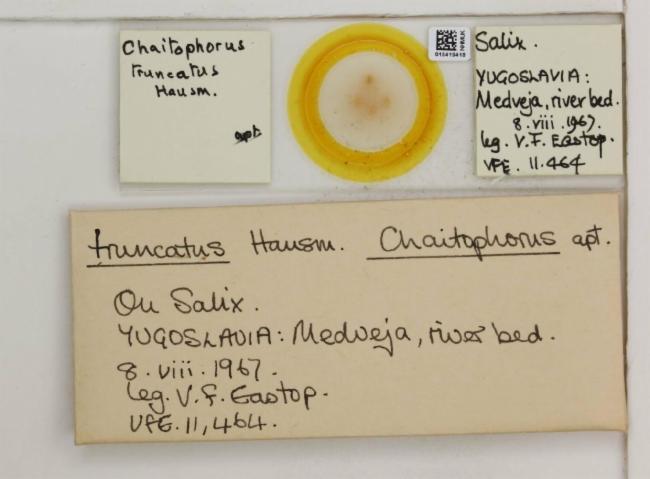 Chaitophorus
truncatus
Hausm.
apt.
NHMUK
Salix.
YUGOSLAVIA:
Medveja, river bed.
8.viii.1967.
leg. V.F. Eastop.
VFE. 11.464
truncatus Hausm. Chaitophorus apt.
On Salix.
YUGOSLAVIA: Medveja, river bed.
8.viii.1967.
leg. V.F. Eastop.
VFE. 11,464.